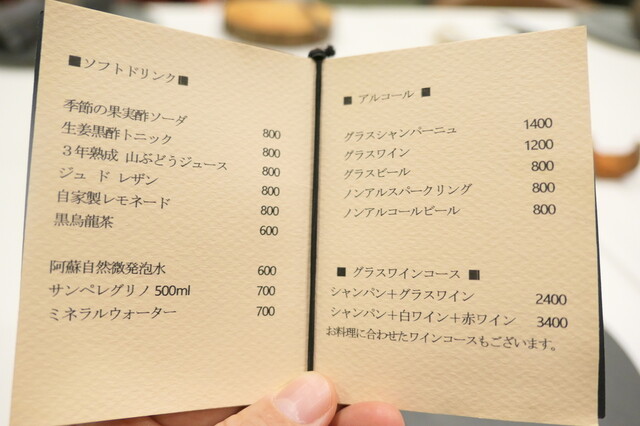 ■ソフトドリンク■
季節の果実酢ソーダ 800
生姜黒酢トニック 800
３年熟成 山ぶどうジュース 800
ジュ ド レザン 800
自家製レモネード 800
黒烏龍茶 600
阿蘇自然微発泡水 600
サンペレグリノ 500ml 700
ミネラルウォーター 700
■ アルコール ■
グラスシャンパーニュ 1400
グラスワイン 1200
グラスビール 800
ノンアルスパークリング 800
ノンアルコールビール 800
■ グラスワインコース ■
シャンパン＋グラスワイン 2400
シャンパン＋白ワイン＋赤ワイン 3400
お料理に合わせたワインコースもございます。